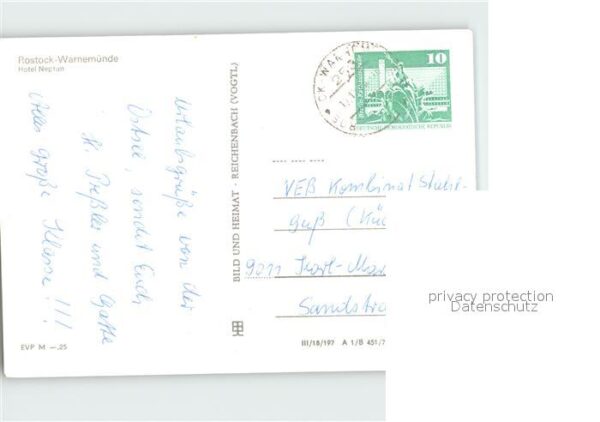 Rostock-Warnemünde
Hotel Neptun
Urlaubsgrüße von der
Ostsee, sendet Euch
H. Preßler und Gatte
Alles große Klasse!!!
EVP M —,25
BILD UND HEIMAT · REICHENBACH (VOGTL)
10
DEUTSCHE DEMOKRATISCHE REPUBLIK
VEB Kombinat Stahl-
guß (Kü
9011 Karl-Mar
Sandstra
III/18/197 A 1/B 451/7
privacy protection
Datenschutz